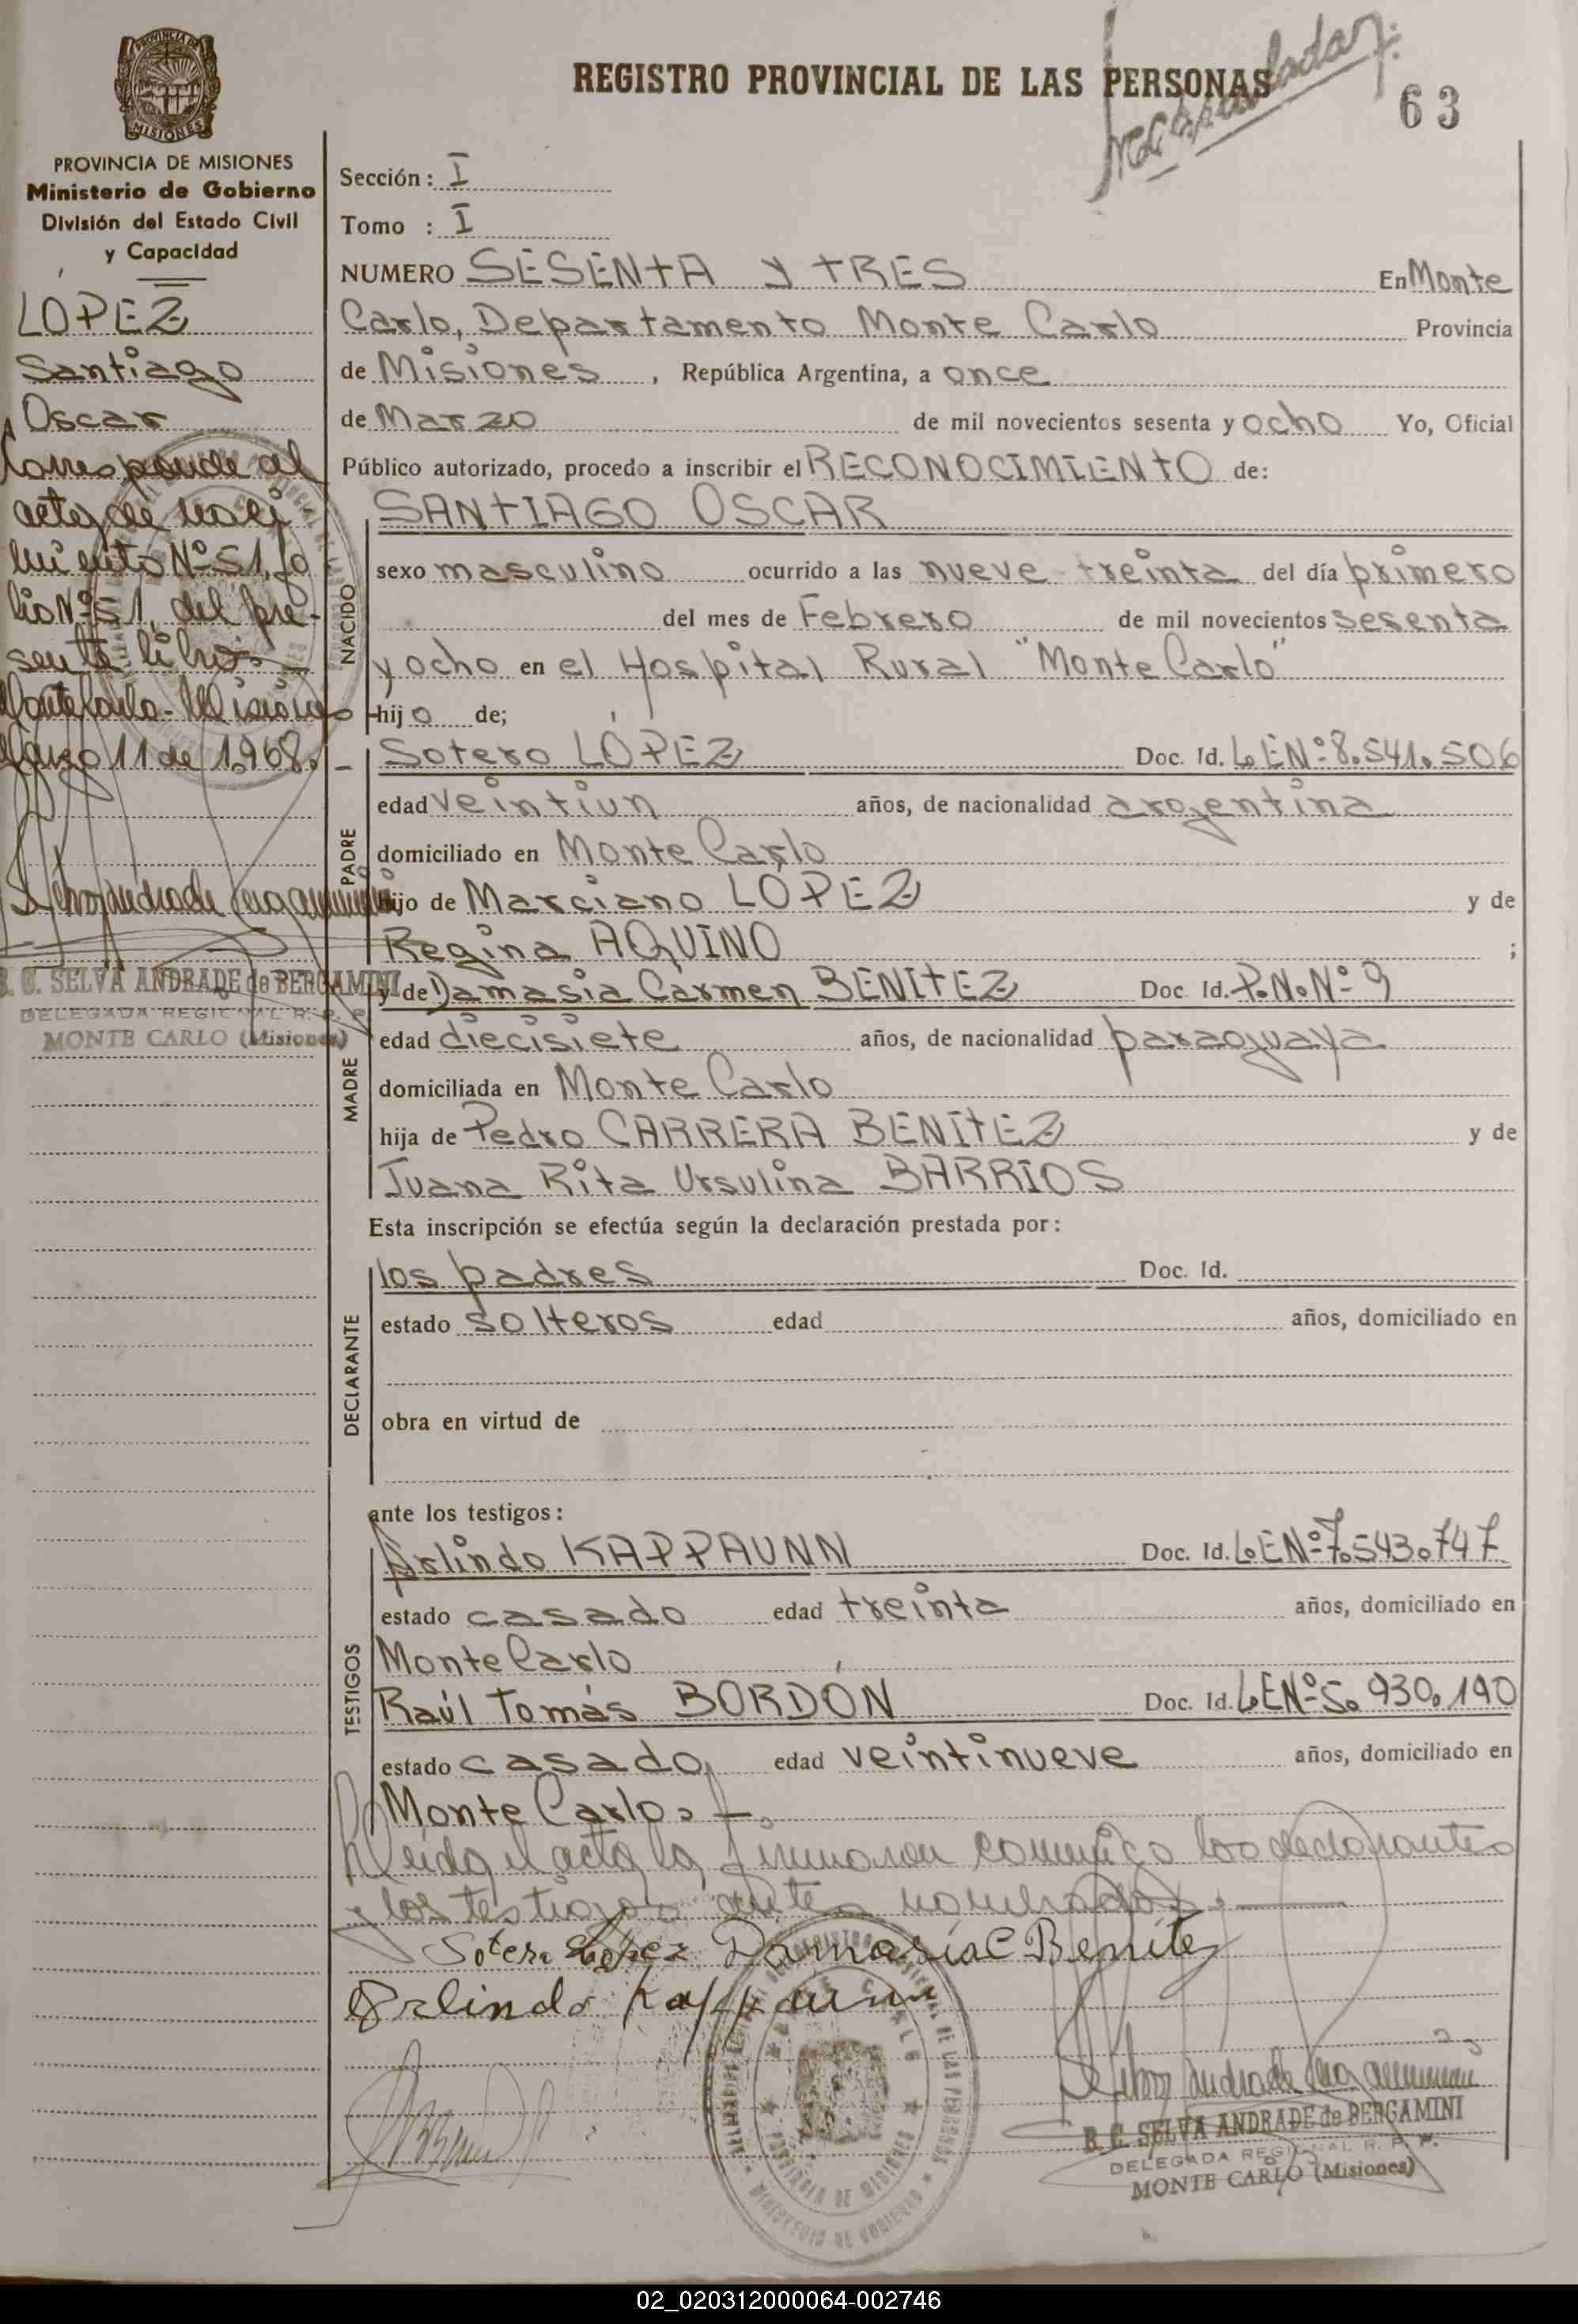 REGISTRO PROVINCIAL DE LAS PERSONAS
63
PROVINCIA DE MISIONES
Ministerio de Gobierno
División del Estado Civil
y Capacidad
LÓPEZ
Santiago
Oscar
Corresponde al
acta de naci
miento Nº 51, fo
lio Nº 51, del pre-
sente libro.
Monte Carlo - Misiones
Marzo 11 de 1968. -
B. C. SELVA ANDRADE de BERGAMINI
DELEGADA REGIONAL R. P. P.
MONTE CARLO (Misiones)
Sección: I
Tomo : I
NUMERO SESENTA Y TRES En Monte
Carlo, Departamento Monte Carlo Provincia
de Misiones, República Argentina, a once
de Marzo de mil novecientos sesenta y ocho Yo, Oficial
Público autorizado, procedo a inscribir el RECONOCIMIENTO de:
NACIDO
SANTIAGO OSCAR
sexo masculino ocurrido a las nueve treinta del día primero
del mes de Febrero de mil novecientos sesenta
y ocho en el Hospital Rural "Monte Carlo"
hijo de;
PADRE
Sotero LÓPEZ Doc. Id. L.E.Nº 8.541.506
edad veintiun años, de nacionalidad argentina
domiciliado en Monte Carlo
hijo de Marciano LÓPEZ y de
Regina AQUINO ;
MADRE
y de Damasia Carmen BENITEZ Doc. Id. P.N.Nº 9
edad diecisiete años, de nacionalidad paraguaya
domiciliada en Monte Carlo
hija de Pedro CARRERA BENITEZ y de
Juana Rita Ursulina BARRIOS
Esta inscripción se efectúa según la declaración prestada por:
DECLARANTE
los padres Doc. Id.
estado solteros edad años, domiciliado en
obra en virtud de
ante los testigos:
TESTIGOS
Arlindo KAPPAUNN Doc. Id. L.E.Nº 7.543.747
estado casado edad treinta años, domiciliado en
Monte Carlo
Raúl Tomás BORDÓN Doc. Id. L.E.Nº 5.930.190
estado casado, edad veintinueve años, domiciliado en
Monte Carlo. -
Leída el acta la firmaron conmigo los declarantes
y los testigos antes nombrados.
Sotero López Damasia C Benitez
Arlindo Kappaunn
B. C. SELVA ANDRADE de BERGAMINI
DELEGADA REGIONAL R. P. P.
MONTE CARLO (Misiones)
02_020312000064-002746